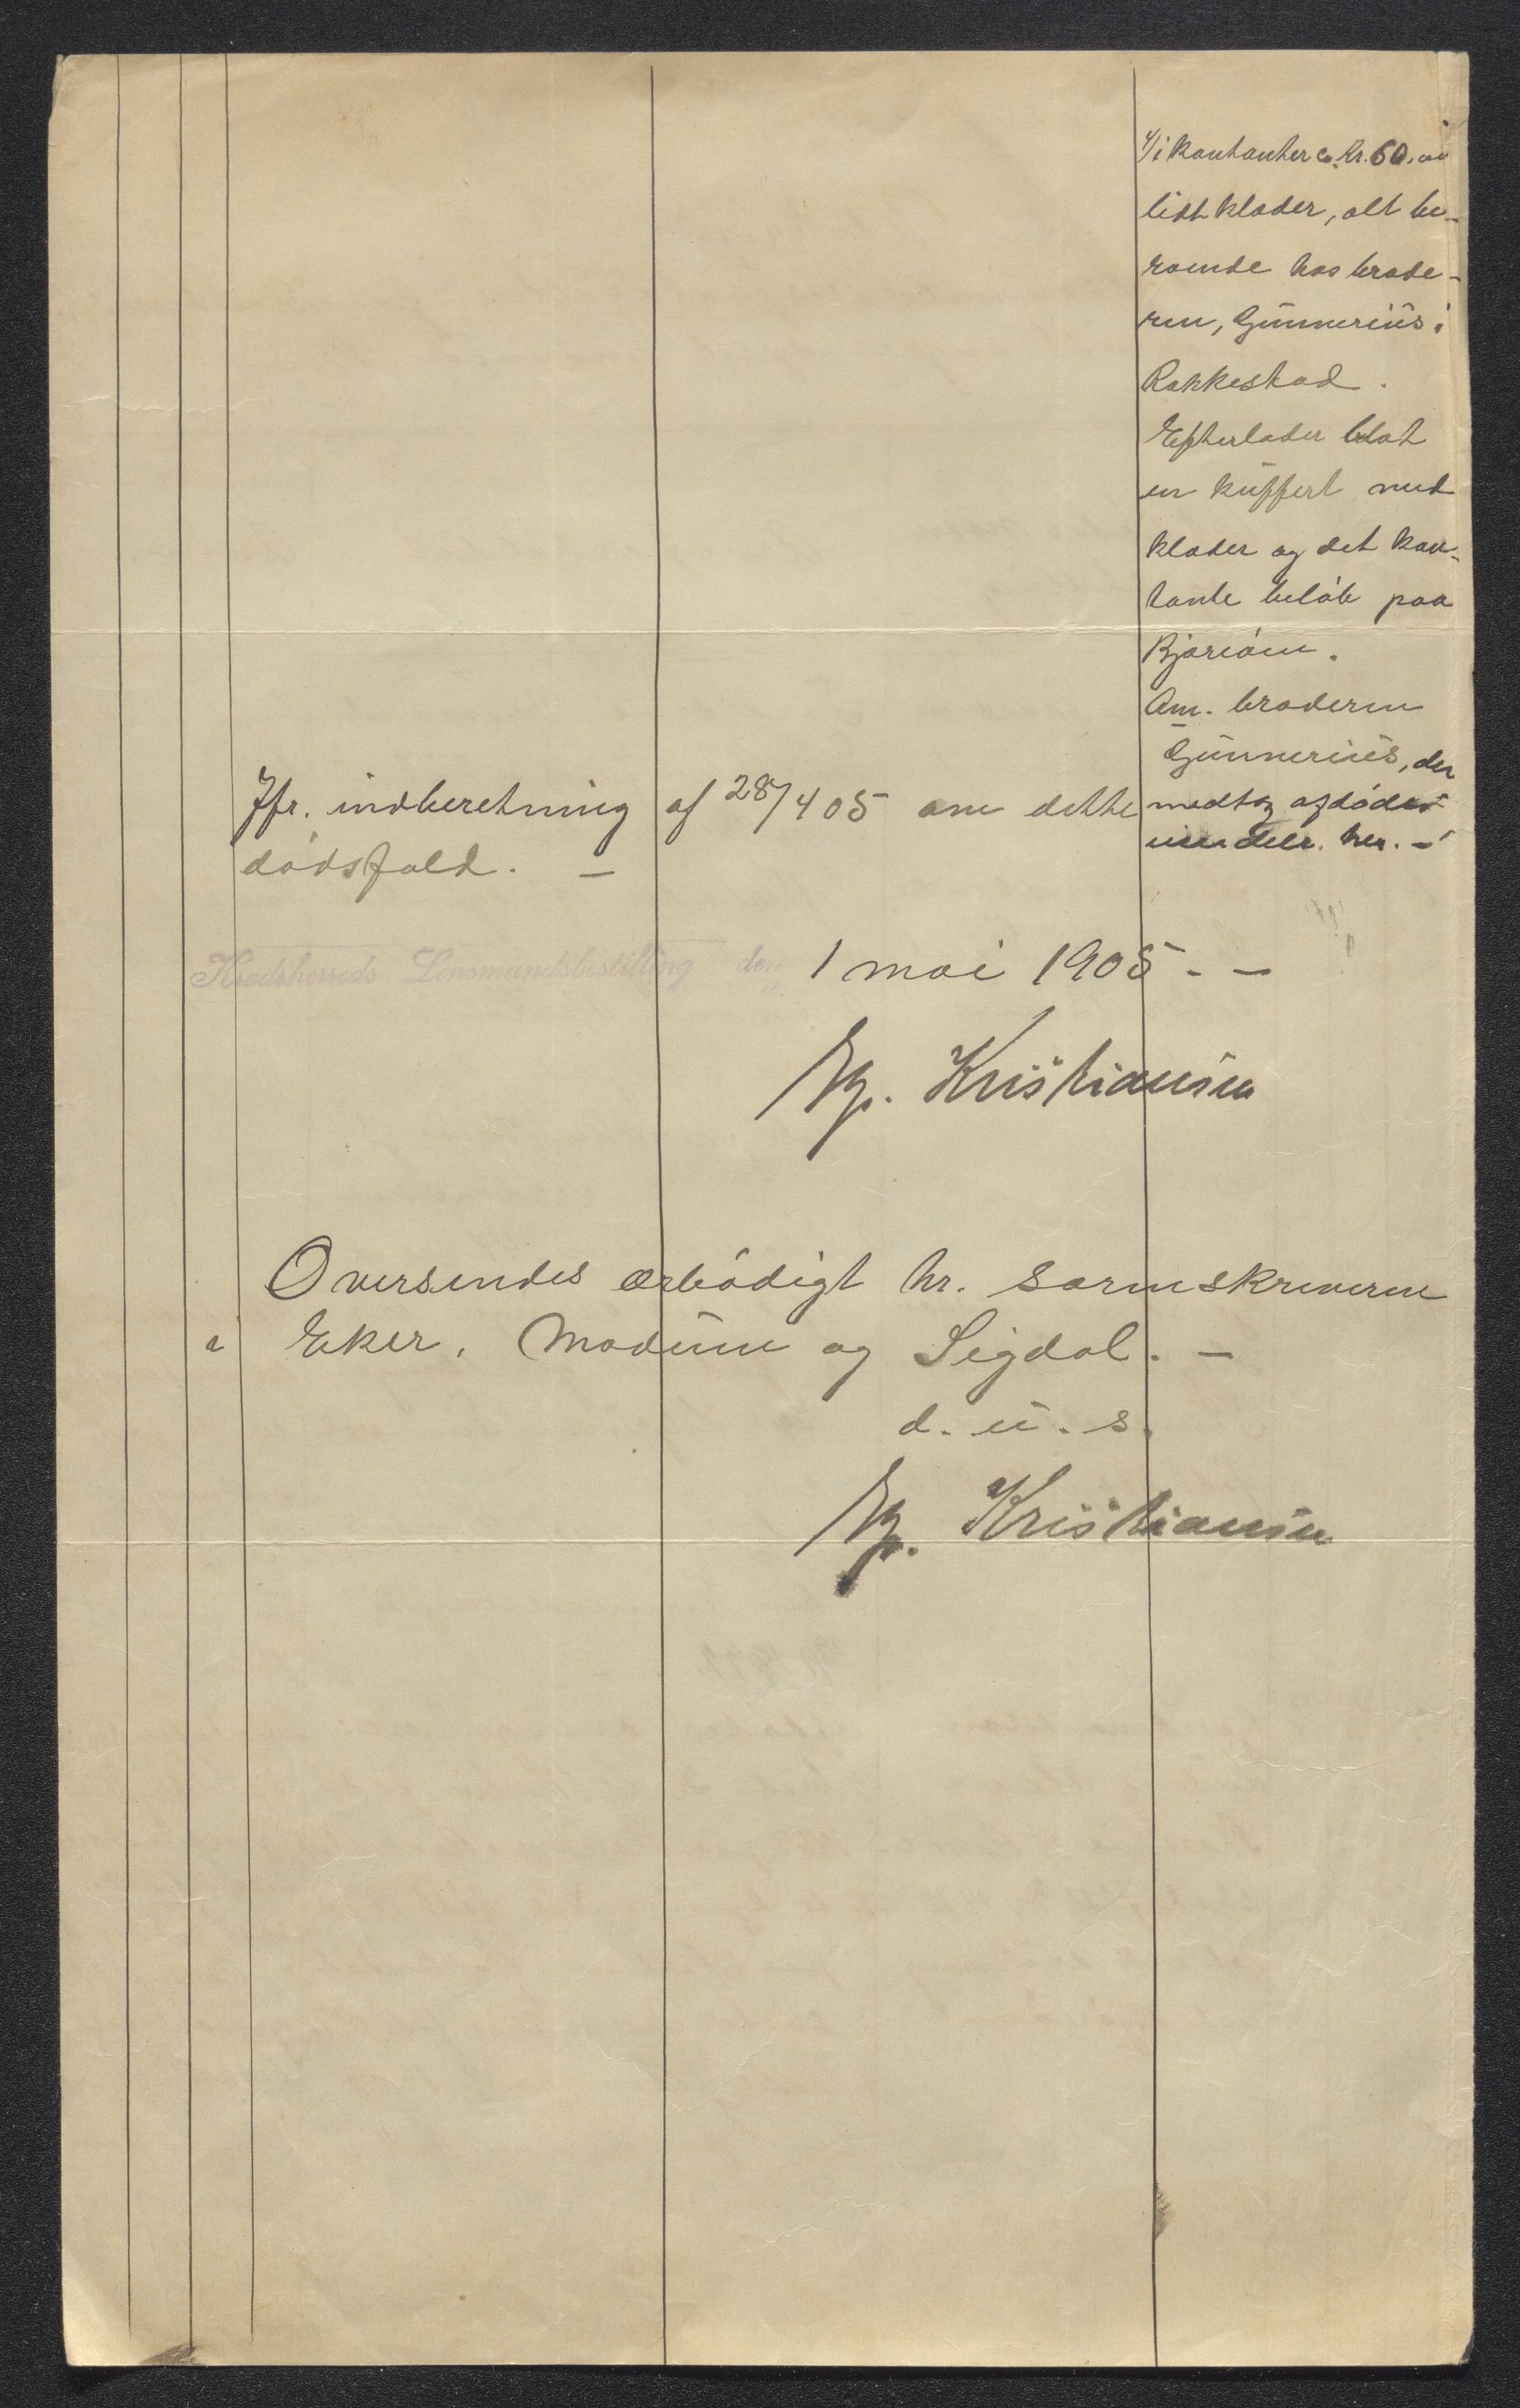 i kontanter ca. Kr. 60. og
lidt klæder, alt be-
roende hos brode-
ren, Gunnerius i
Rakkestad.
Efterlader blot
en kuffert med
klæder og det kon-
tante beløb paa
Bjøreøen.
Anm. broderen
Gunnerius, der
medtog afdødes
eiendele. her. -
Jfr. indberetning af 28/4 05 om dette
dødsfald. -
Krødsherreds Lensmandsbestilling den 1 mai 1905. -
Kristiansen
Oversendes ærbødigt hr. sorenskriveren
i Eker, Modum og Sigdal. -
d. u. s.
Kristiansen